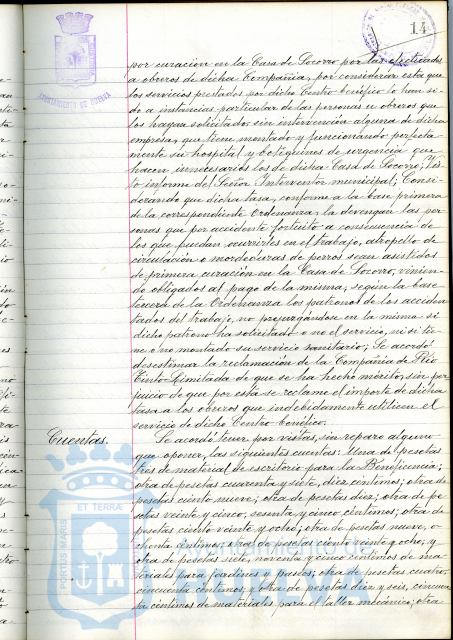 14
AYUNTAMIENTO DE HUELVA
por curación en la Casa de Socorro por las efectuadas
a obreros de dicha Compañia, por considerar esta que
los servicios prestados por dicho Centro benéfico lo han si-
do a instancias particular de las personas u obreros que
los hayan solicitado sin intervención alguna de dicha
empresa, que tiene montado y funcionando perfecta-
mente su hospital y botiquines de urgencia que
hacen innecesarios los de dicha Casa de Socorro; Vis-
to informe del Señor Interventor municipal; Consi-
derando que dicha tasa, conforme a la base primera
de la correspondiente Ordenanza, la devengan las per-
sonas que por accidente fortuito a consecuencia de
los que puedan ocurrirles en el trabajo, atropello de
circulación o mordeduras de perros sean asistidos
de primera curación en la Casa de Socorro, vinien-
do obligados al pago de la misma, según la base
tercera de la Ordenanza los patronos de los acciden-
tados del trabajo, no prejuzgándose en la misma si
dicho patrono ha solicitado o no el servicio, ni si tie-
ne o no montado su servicio sanitario; Se acordó
desestimar la reclamación de la Compañia de Rio
Tinto Limitada de que se ha hecho mérito, sin per-
juicio de que por esta se reclame el importe de dicha
tasa a los obreros que indebidamente utilicen el
servicio de dicho Centro benéfico.
Cuentas. Se acordó tener por vistas, sin reparo alguno
que oponer, las siguientes cuentas: Una de pesetas
tres de material de escritorio para la Beneficencia;
otra de pesetas cuarenta y siete, diez céntimos; otra de
pesetas ciento nueve; otra de pesetas diez; otra de pe-
setas veinte y cinco, sesenta y cinco céntimos; otra de
pesetas ciento veinte y ocho; otra de pesetas nueve, o-
chenta céntimos; otra de pesetas ciento veinte y ocho; y
otra de pesetas siete, noventa y cinco céntimos de ma-
teriales para jardines y paseos; otra de pesetas cuatro,
cincuenta céntimos y otra de pesetas diez y seis, cincuen-
ta céntimos de materiales para el taller mecánico; otra
PORTUS MARIS ET TERRÆ
Ayuntamiento de